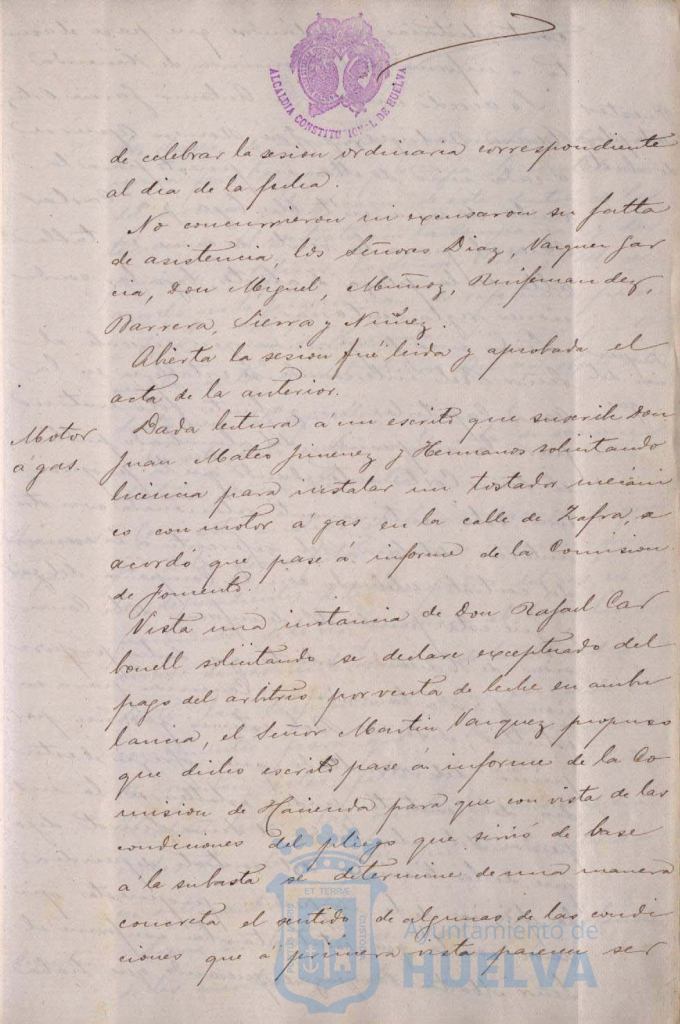 ALCALDIA CONSTITUCIONAL DE HUELVA
de celebrar la sesion ordinaria correspondiente
al dia de la fecha.
No concurrieron ni excusaron su falta
de asistencia, los Señores Diaz, Vazquez Gar
cia, Don Miguel, Muñoz, Ruifernandez,
Barrera, Sierra y Nuñez.
Abierta la sesion fué leida y aprobada el
acta de la anterior.
Motor
á gas.
Dada lectura á un escrito que suscribe Don
Juan Mateo Jimenez y Hermanos solicitando
licencia para instalar un tostador mecáni
co con motor á gas en la calle de Zafra, se
acordó que pase á informe de la Comision
de Fomento.
Vista una instancia de Don Rafael Car
bonell solicitando se declare exceptuado del
pago del arbitrio por venta de leche en ambu
lancia, el Señor Martin Vazquez propuso
que dicho escrito pase á informe de la Co
mision de Hacienda para que con vista de las
condiciones del pliego que sirvió de base
á la subasta se determine de una manera
concreta el sentido de algunas de las condi
ciones que á primera vista parecen ser
Ayuntamiento de
HUELVA